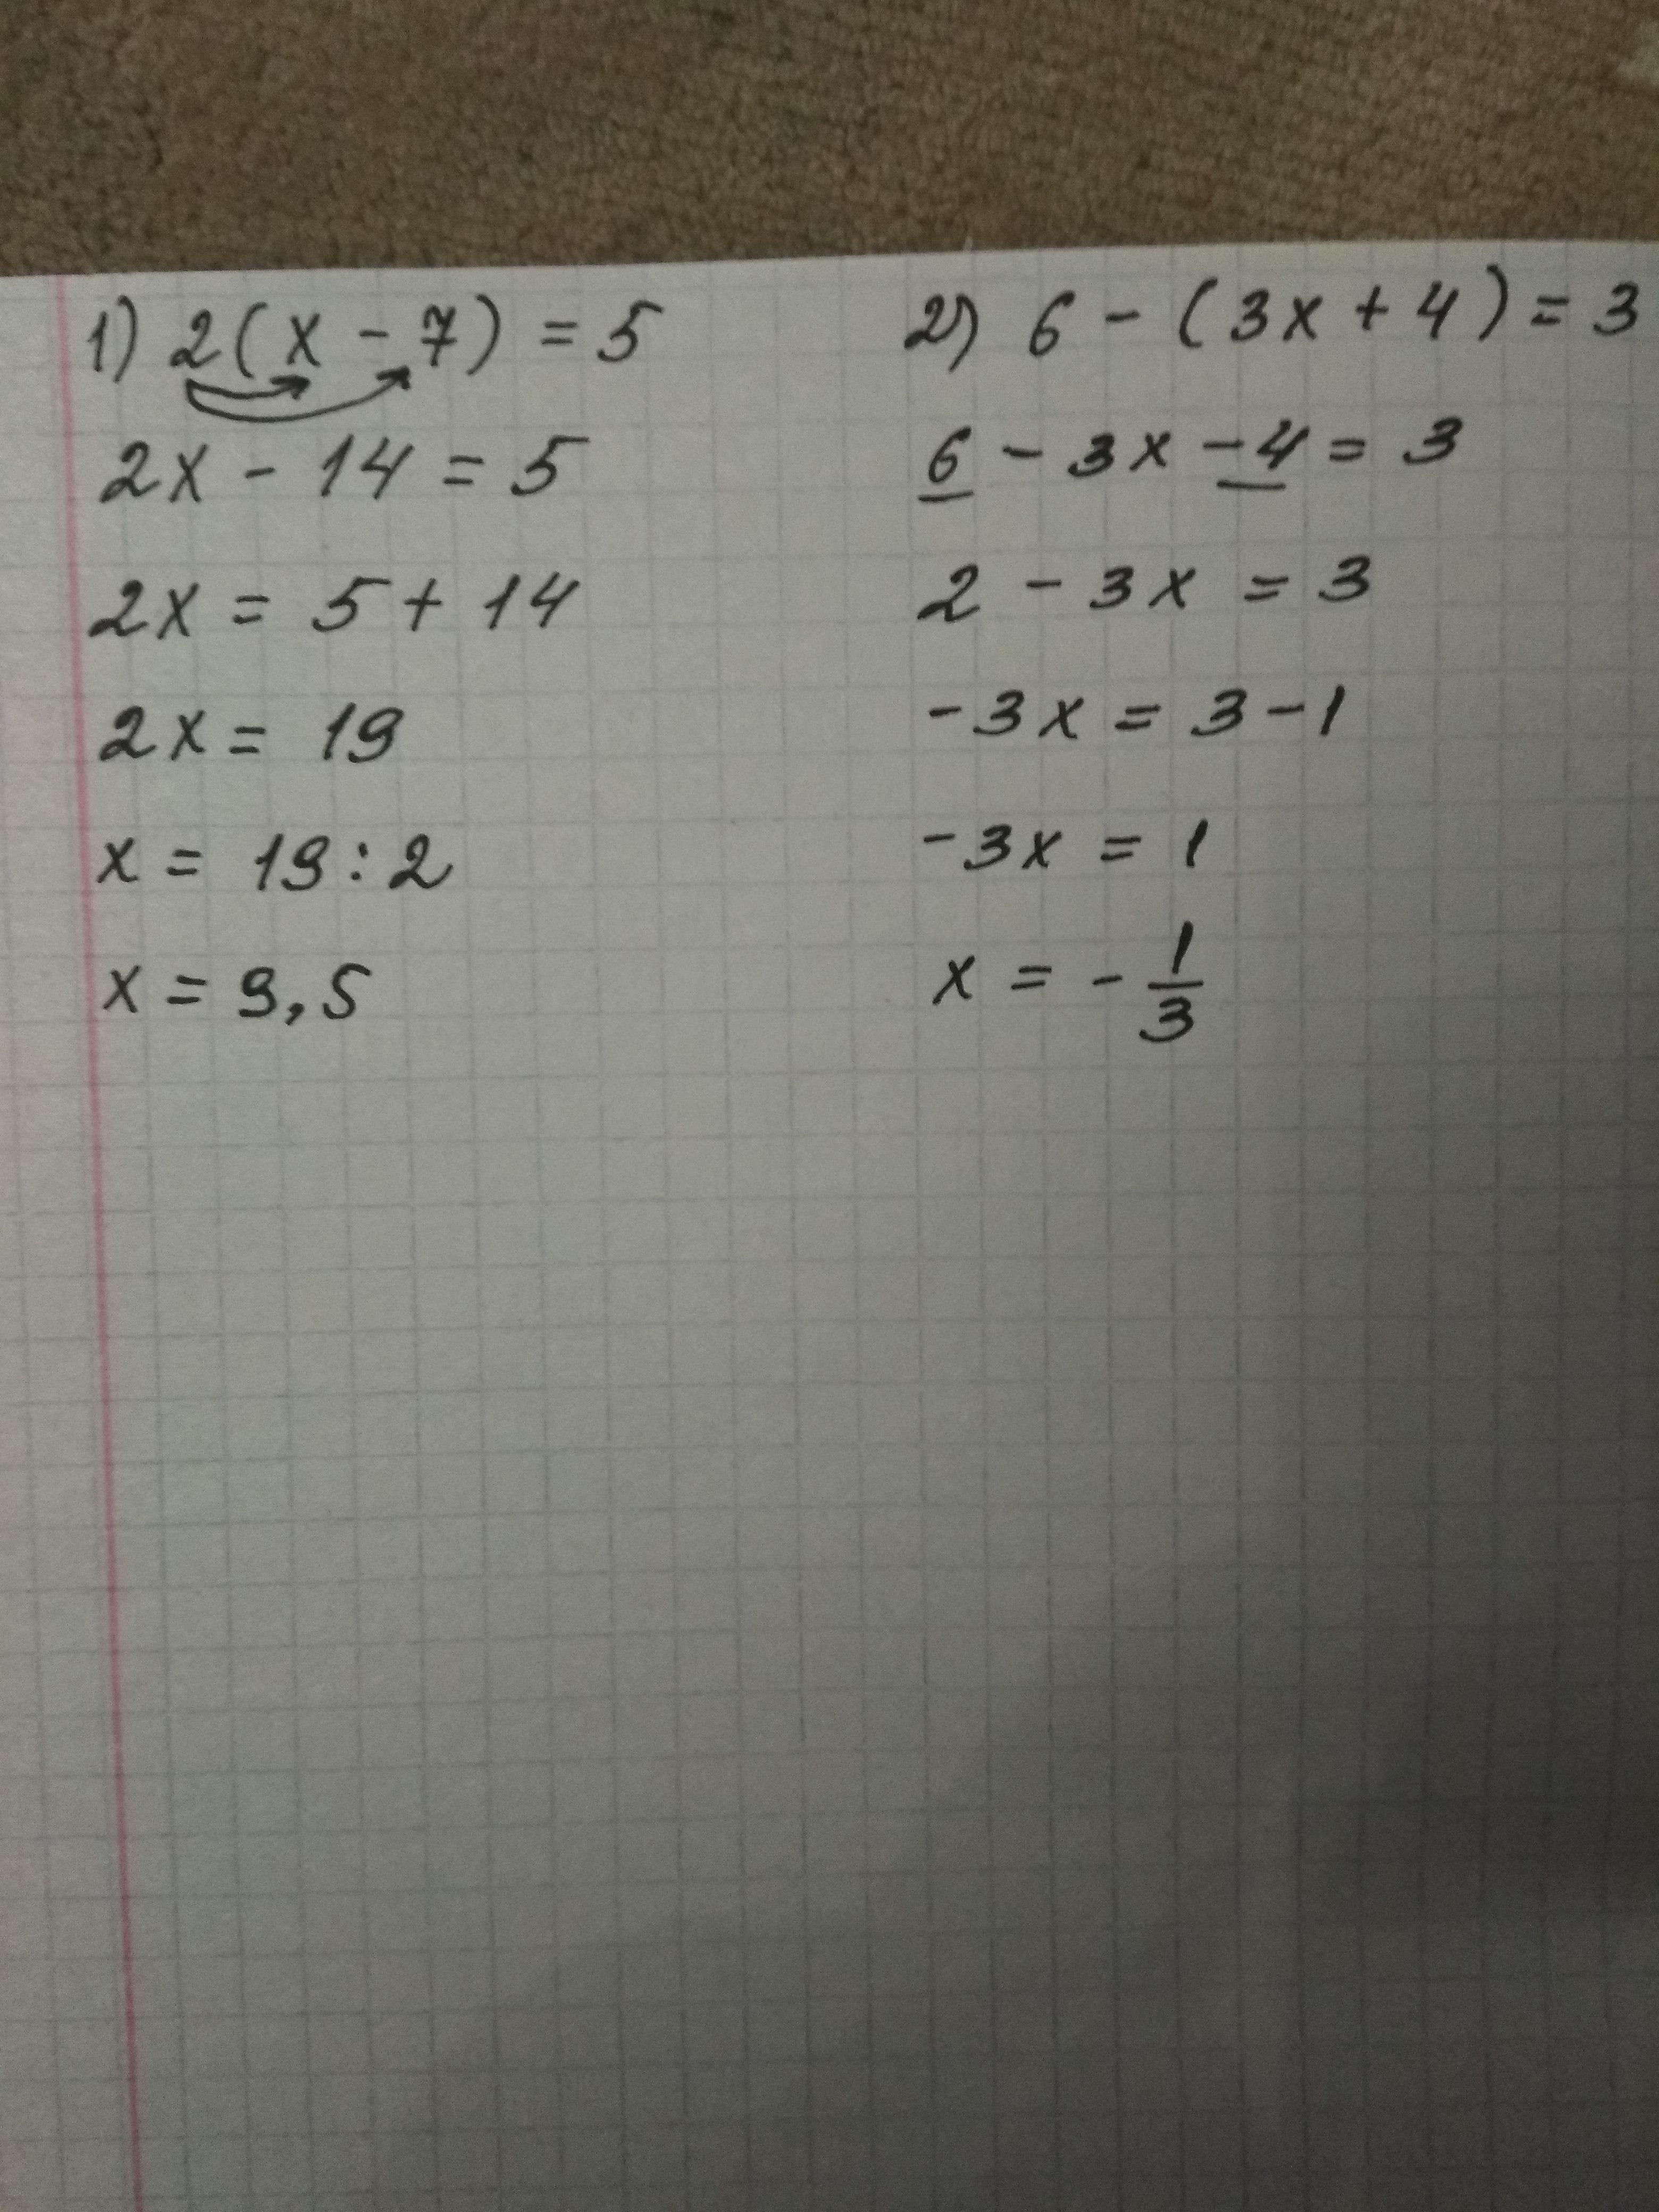 1) 2(x - 7) = 5
2x - 14 = 5
2x = 5 + 14
2x = 19
x = 19 : 2
x = 9,5
2) 6 - (3x + 4) = 3
6 - 3x - 4 = 3
2 - 3x = 3
-3x = 3 - 1
-3x = 1
x = - 1/3